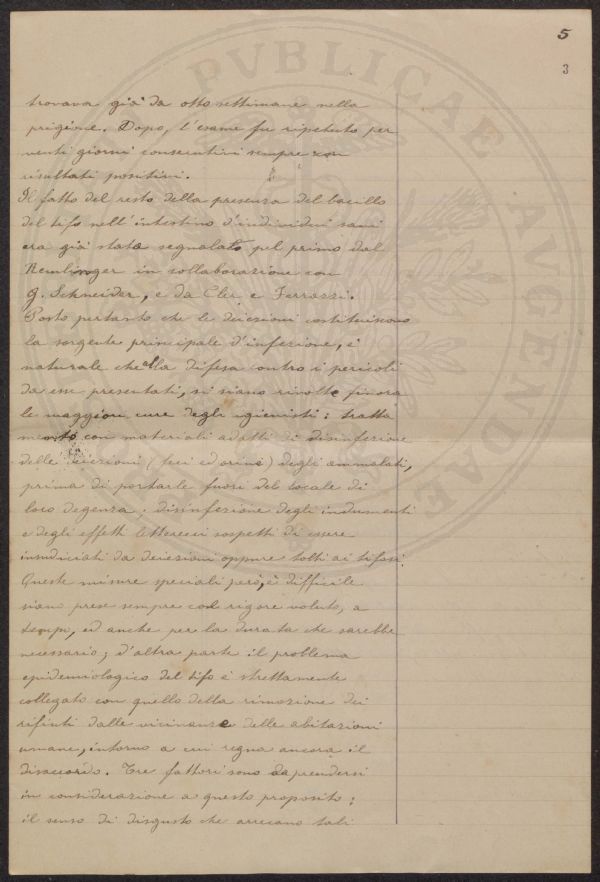 5
3
trovava già da otto settimane nella
prigione. Dopo, l'esame fu ripetuto per
venti giorni consecutivi sempre con
risultati positivi.
Il fatto del resto della presenza del bacillo
del tifo nell'intestino d'individui sani
era già stata segnalato pel primo dal
Remlinger in collaborazione con
G. Schneider, e da Cler e Ferrazzi.
Posto pertanto che le deiezioni costituiscono
la sorgente principale d'infezione, è
naturale che alla difesa contro i pericoli
da esse presentati, si siano rivolte finora
le maggiori cure degli igienisti: tratta
mento con materiali adatti di disinfezione
delle deiezioni (feci ed orine) degli ammalati,
prima di portarle fuori del locale di
loro degenza; disinfezione degli indumenti
e degli effetti letterecci sospetti di essere
insudiciati da deiezioni oppure tolti ai tifosi.
Queste misure speciali però, è difficile
siano prese sempre col rigore voluto, a
tempo, ed anche per la durata che sarebbe
necessario; d'altra parte il problema
epidemiologico del tifo è strettamente
collegato con quello della rimozione dei
rifiuti dalle vicinanze delle abitazioni
umane, intorno a cui regna ancora il
disaccordo. Tre fattori sono da prendersi
in considerazione a questo proposito:
il senso di disgusto che arrecano tali
PVBLICAE AVGENDAE